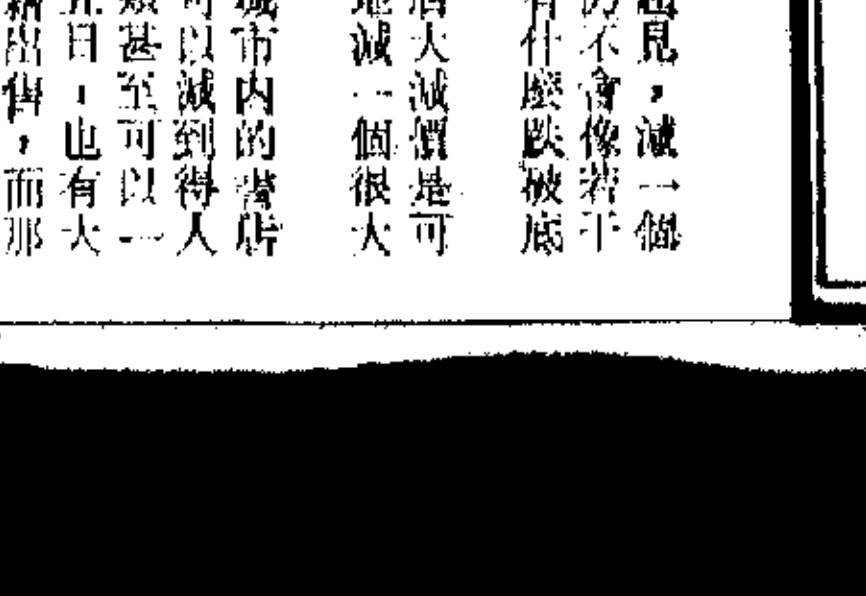 見，減一個
不會像若干
什麼跌破底
大減價是可
減一個很大
市内的書店
以減到得人
甚至可以一
日，也有大
出售，而那